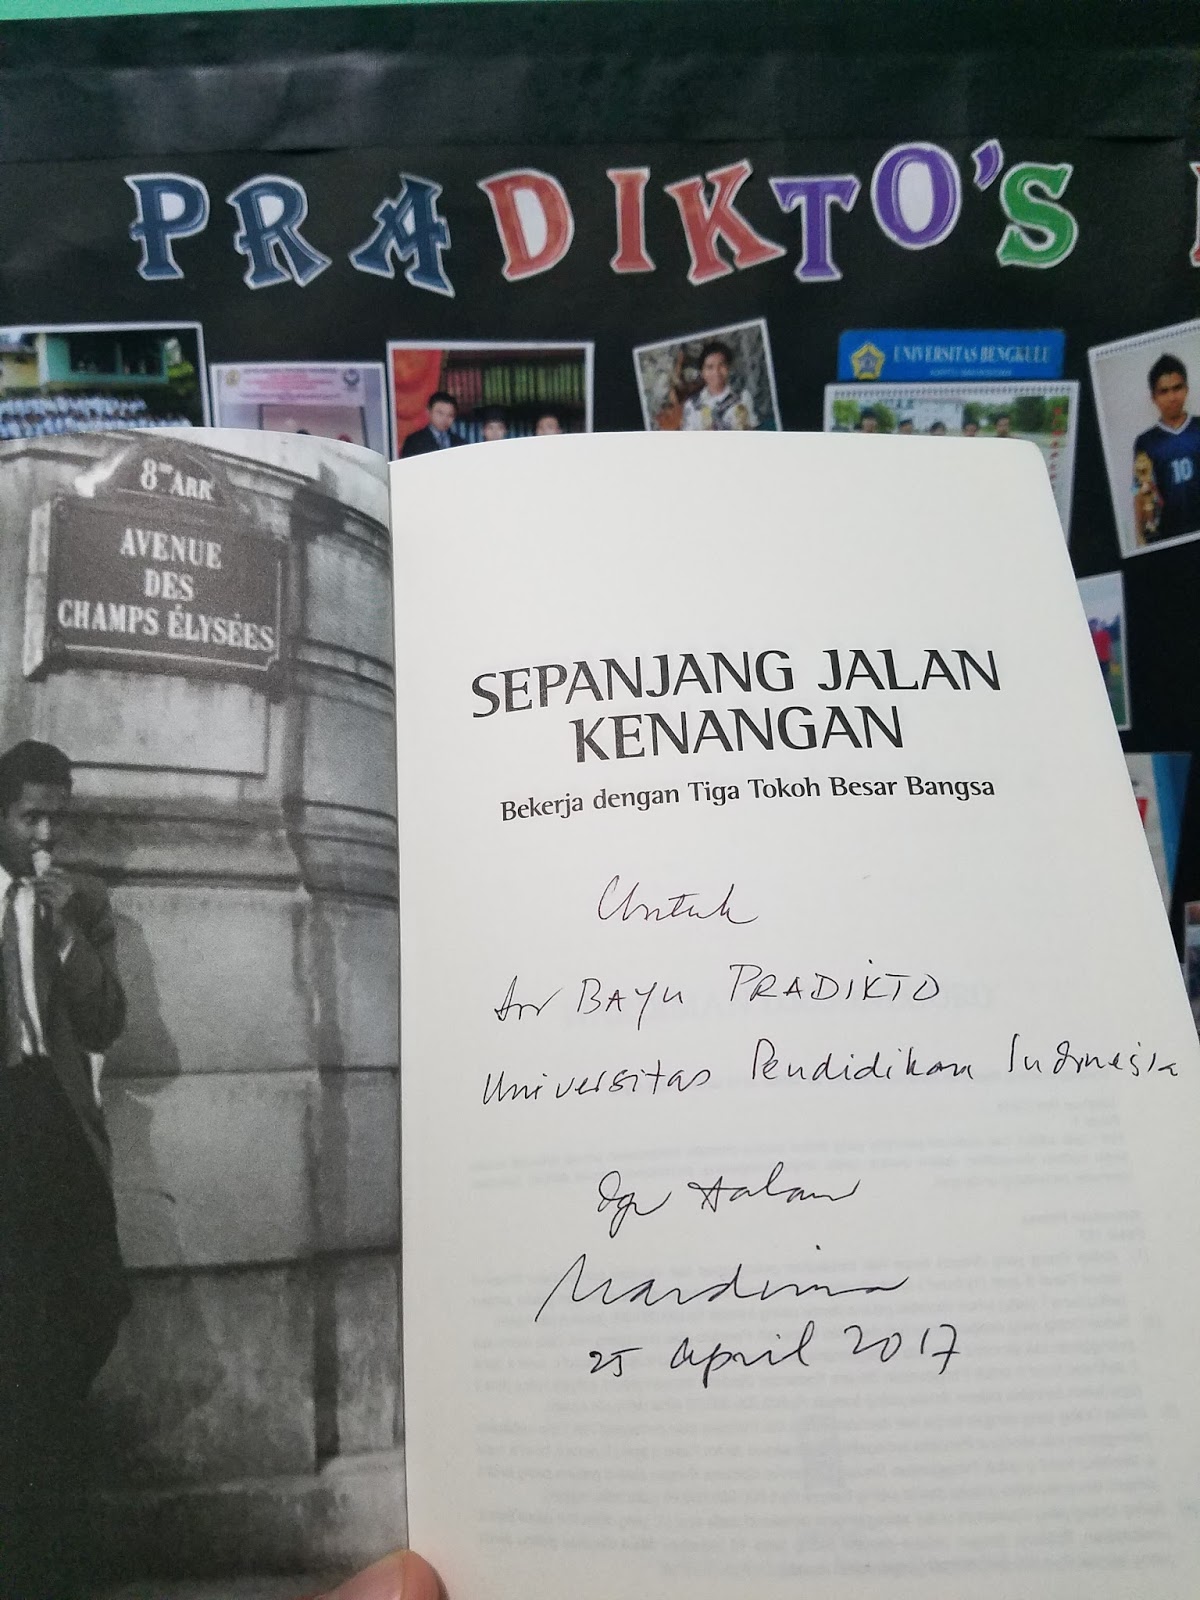 PRADIKTO'S
UNIVERSITAS BENGKULU
10
8me ARR
AVENUE
DES
CHAMPS ÉLYSÉES
SEPANJANG JALAN
KENANGAN
Bekerja dengan Tiga Tokoh Besar Bangsa
Untuk
BAYU PRADIKTO
Universitas Pendidikan Indonesia
dgn salam
Wardiman
25 April 2017